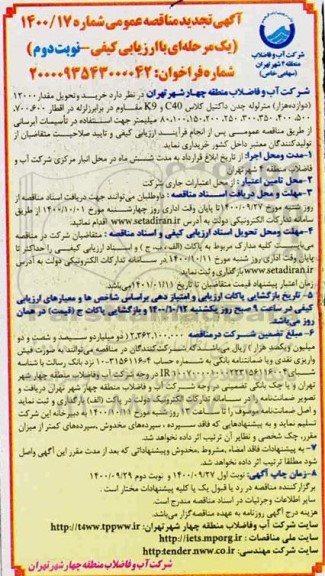 آگهی تجدید مناقصه عمومی شماره ۱۴۰۰/۱۷
(یک مرحله‌ای با ارزیابی کیفی - نوبت دوم)
شماره فراخوان: ۲۰۰۰۰۹۳۵۴۳۰۰۰۰۴۲
شرکت آب و فاضلاب
منطقه ۴ شهر تهران
(سهامی خاص)
شرکت آب و فاضلاب منطقه چهار شهر تهران در نظر دارد خرید و تحویل مقدار ۱۲۰۰۰
(دوازده‌هزار) متر لوله چدن داکتیل کلاس C40 و K9 مقاوم در برابر زلزله در اقطار ۶۰۰، ۷۰۰،
۵۰۰، ۴۰۰، ۳۵۰، ۳۰۰، ۲۵۰، ۲۰۰، ۱۵۰، ۱۰۰، ۸۰ میلیمتر جهت استفاده در تأسیسات آبرسانی
از طریق مناقصه عمومی پس از انجام فرآیند ارزیابی کیفی و تایید صلاحیت متقاضیان از
تولیدکنندگان معتبر داخل کشور خریداری نماید.
۱-مدت و محل اجرا: از تاریخ ابلاغ قرارداد به مدت شش ماه در محل انبار مرکزی شرکت آب و
فاضلاب منطقه ۴ شهر تهران
۲-محل تامین اعتبار: از محل اعتبارات جاری شرکت
۳-مهلت و محل دریافت اسناد مناقصه: داوطلبان می‌توانند جهت دریافت اسناد مناقصه از
روز شنبه مورخ ۱۴۰۰/۰۹/۲۷ تا پایان وقت اداری روز چهارشنبه مورخ ۱۴۰۰/۱۰/۰۱ از طریق
سامانه تدارکات الکترونیکی دولت به آدرس www.setadiran.ir اقدام نمایند.
۴-مهلت ومحل تحویل اسناد ارزیابی کیفی و اسناد مناقصه: متقاضیان شرکت در مناقصه
می‌بایست کلیه مدارک مربوط به پاکات (الف، ب، ج) و اسناد ارزیابی کیفی را حداکثر تا
پایان وقت اداری روز شنبه مورخ ۱۴۰۰/۱۰/۱۱ در سامانه تدارکات الکترونیکی دولت به آدرس
www.setadiran.ir بارگذاری و ثبت نماید.
زمان اعتبار پیشنهاد قیمت متقاضیان تا تاریخ ۱۴۰۱/۰۱/۱۱ می‌باشد.
۵- تاریخ بازگشایی پاکات ارزیابی و امتیازدهی براساس شاخص ها و معیارهای ارزیابی
کیفی در ساعت ۹ صبح روز یکشنبه ۱۴۰۰/۱۰/۱۲ و بازگشایی پاکات ج (قیمت) در همان
روز می‌باشد.
۶- مبلغ تضمین شرکت در مناقصه ۲،۳۶۲،۱۰۰،۰۰۰ (دو میلیارد و سیصد و شصت و دو
میلیون و یکصد هزار) ریال می‌باشد که شرکت‌کنندگان در مناقصه می‌توانند به صورت فیش
واریزی نقدی و یا ضمانتنامه بانکی به شماره حساب
تهران و یا چک بانکی تضمینی در وجه شرکت آب و فاضلاب منطقه چهار شهر تهران دریافت و
تصویر ضمانتنامه را در سامانه تدارکات الکترونیک دولت در پاکت (الف) بارگذاری و ثبت نماید
و اصل ضمانتنامه موصوف را تا ساعت ۱۳ روز شنبه مورخ ۱۴۰۰/۱۰/۱۱ به دبیرخانه این شرکت
تسلیم نماید و به پیشنهادهایی که فاقد سپرده، سپرده‌های مخدوش، سپرده‌های کمتر از میزان
مقرر، چک شخصی و نظایر آن ترتیب اثر داده نخواهد شد.
۷- به پیشنهادات فاقد امضاء، مشروط، مخدوش و پیشنهاداتی که بعد از مدت مقرر این آگهی واصل
شود مطلقا ترتیب اثر داده نخواهد شد.
۸- زمان چاپ آگهی: نوبت اول ۱۴۰۰/۰۹/۲۷ و نوبت دوم ۱۴۰۰/۰۹/۲۹
برگزارکننده مناقصه در رد یا قبول یک یا کلیه پیشنهادات مختار است.
سایر اطلاعات و جزئیات در اسناد مناقصه مندرج است.
هزینه درج آگهی روزنامه به عهده مناقصه‌گزار می‌باشد.
سایت شرکت آب و فاضلاب منطقه چهار شهر تهران: http://t4ww.tppww.ir
سایت ملی مناقصات: http://iets.mporg.ir
سایت شرکت مهندسی: http:tender.nww.co.ir
شرکت آب و فاضلاب منطقه چهار شهر تهران